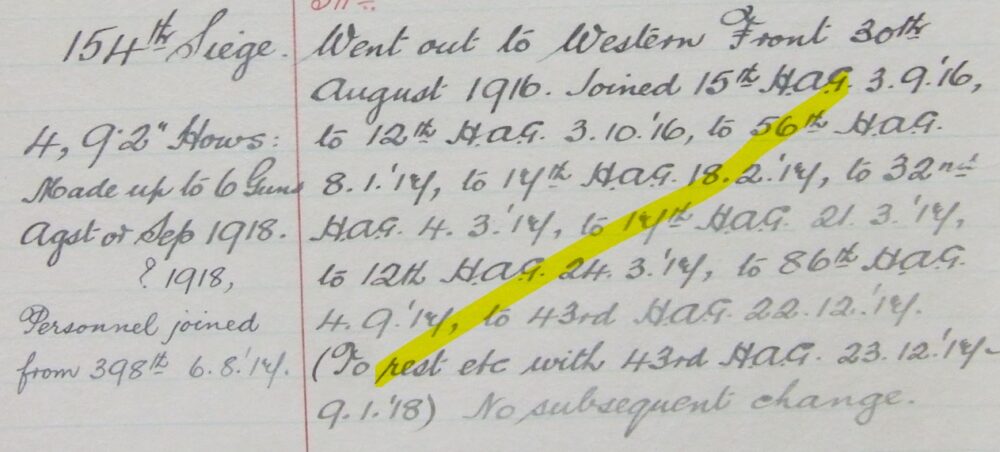 154th Siege.
4, 9.2" Hows:
Made up to 6 Guns
Agst or Sep 1918.
? 1918,
Personnel joined
from 398th 6.8.'17.
Went out to Western Front 30th
August 1916. Joined 15th H.A.G. 3.9.'16,
to 12th H.A.G. 3.10.'16, to 56th H.A.G.
8.1.'17, to 17th H.A.G. 18.2.'17, to 32nd
H.A.G. 4.3.'17, to 17th H.A.G. 21.3.'17,
to 12th H.A.G. 24.3.'17, to 86th H.A.G.
4.9.'17, to 43rd H.A.G. 22.12.'17.
(To rest etc with 43rd H.A.G. 23.12.'17-
9.1.'18) No subsequent change.